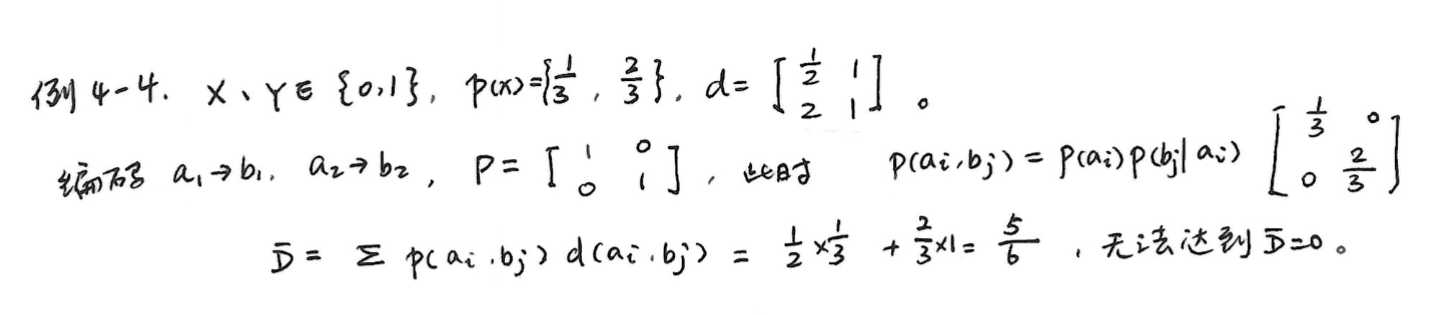 例4-4. X、Y∈{0,1}, p(x)={1/3, 2/3}, d=[1/2 1; 2 1]。
编码 a₁→b₁. a₂→b₂, P=[1 0; 0 1], 此时 p(ai,bj)=p(ai)p(bj|ai) [1/3 0; 0 2/3]
D̄= Σ p(ai,bj) d(ai,bj) = 1/2×1/3 + 2/3×1= 5/6, 无法达到D̄=0。